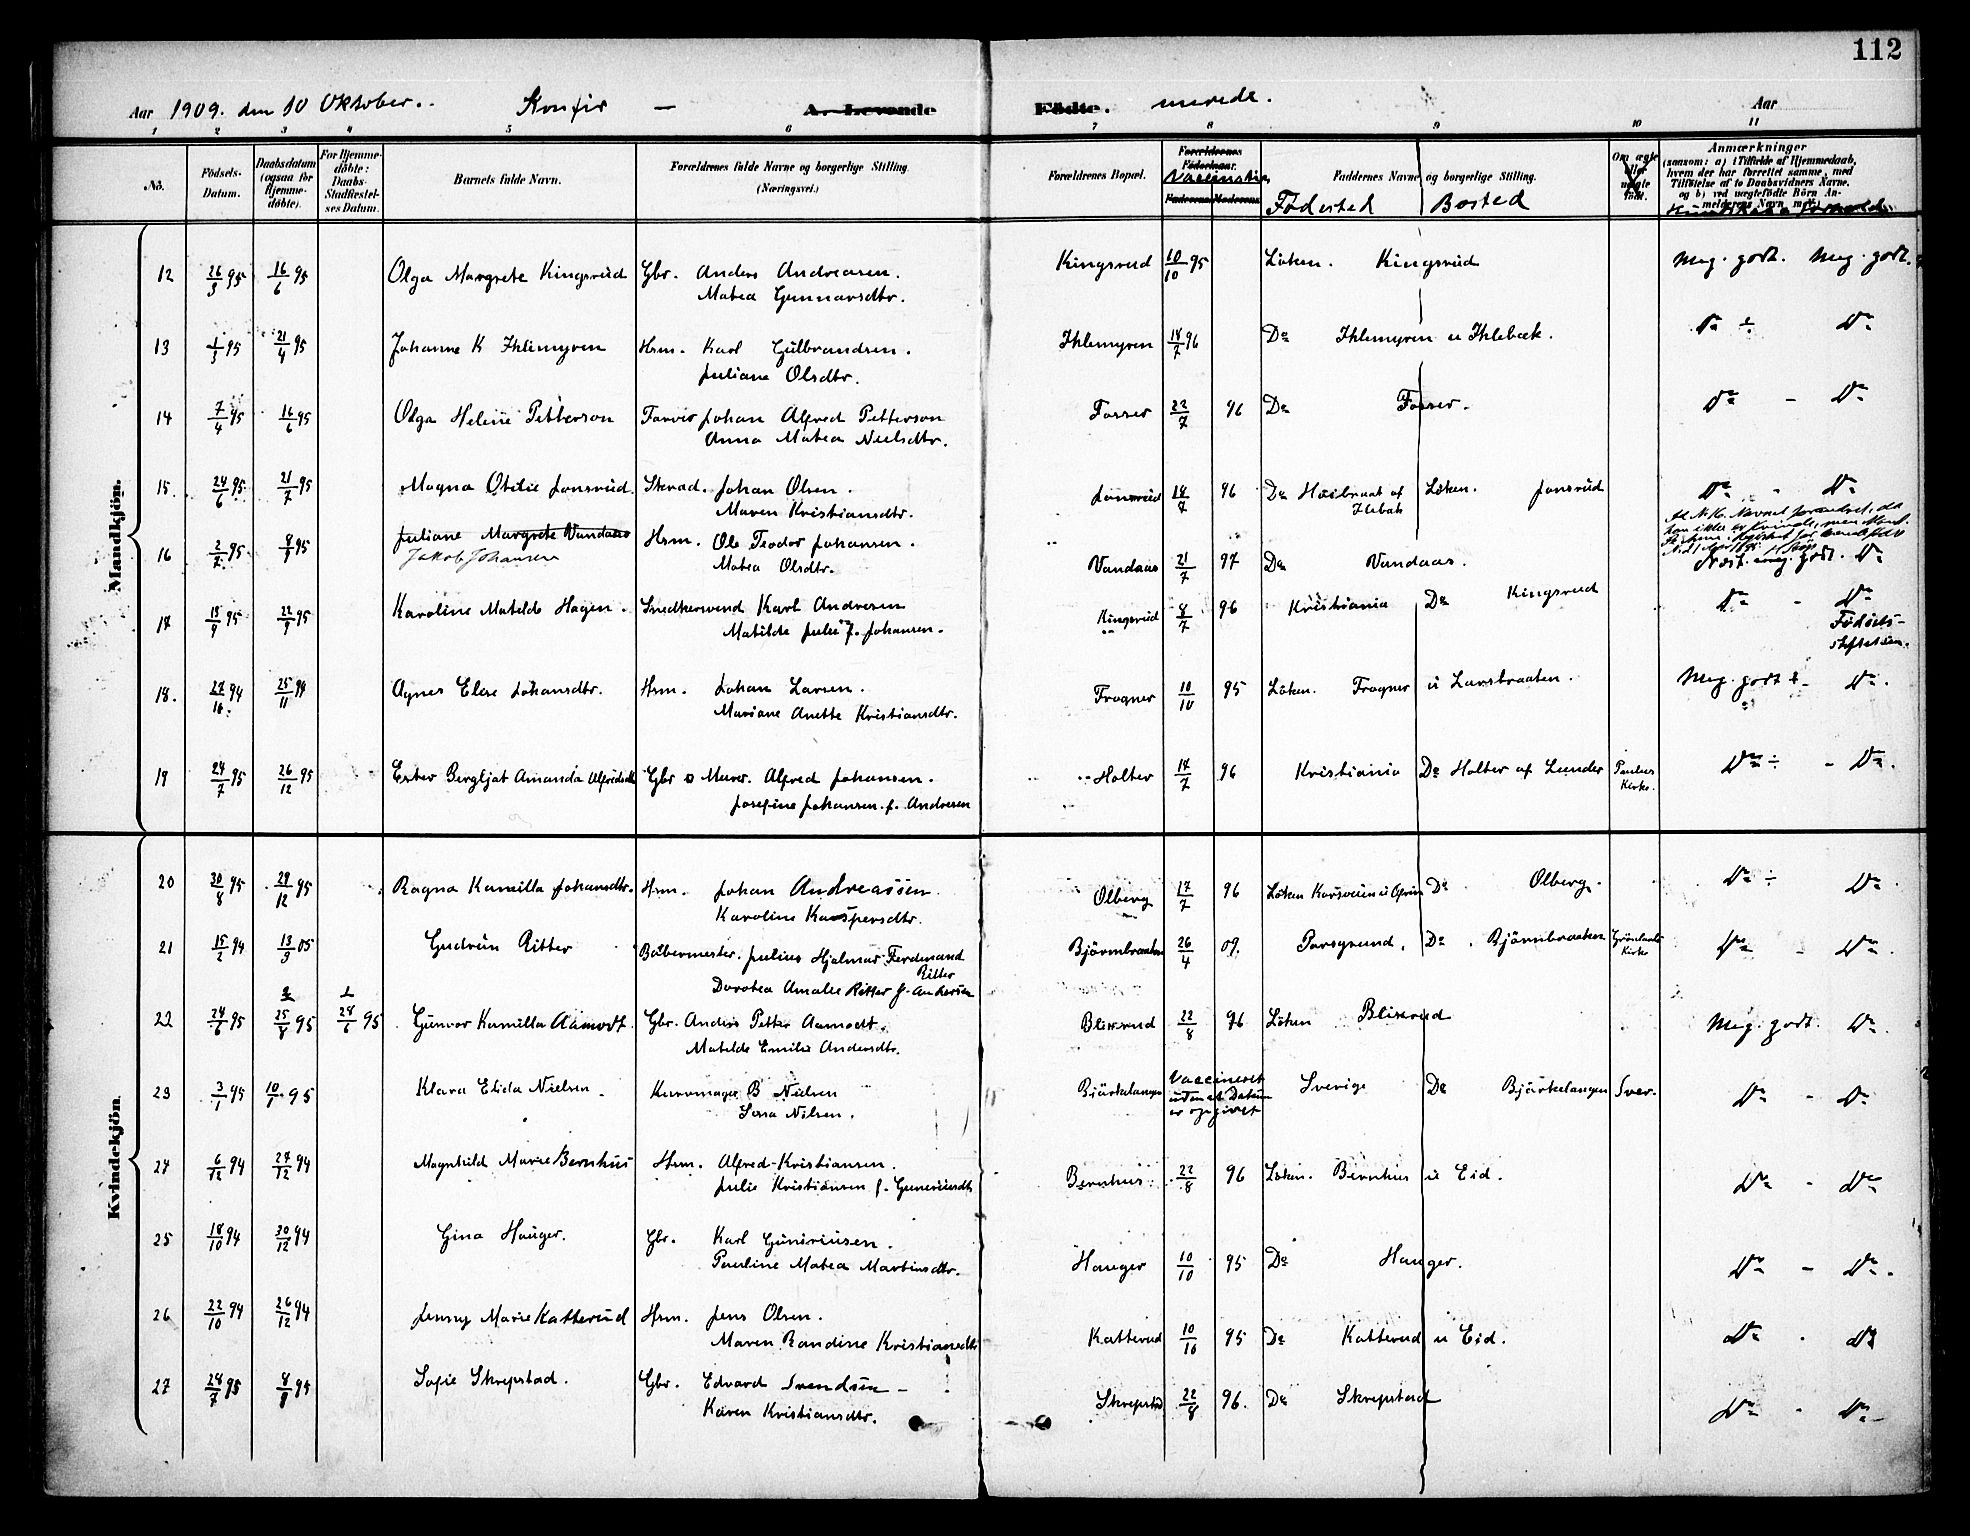 112
Aar 1909. den 10 Oktober. Konfir — A. Levende Födte. merede. Aar
1 2 3 4 5 6 7 8 9 10 11
No. Födsels-Datum. Daabsdatum (ogsaa for Hjemme-döbte). For Hjemme-döbte: Daabs-Stadfæstel-ses Datum. Barnets fulde Navn. Forældrenes fulde Navne og borgerlige Stilling (Næringsvei.) Forældrenes Bopæl. Forældrenes Födselsaar. Faderens Moderens Faddernes Navne og borgerlige Stilling. Om ægte eller uægte födt. Anmærkninger (saasom: a) i Tilfælde af Hjemmedaab, hvem der har forrettet samme, med Tilföielse af to Daabsvidners Navne, og b) ved uægtefödte Börn An-melderens Navn m.m.)
Födested Bosted
Mandkjön.
12 26/3 95 16/6 95 Olga Margrete Kingsrud Gbr. Anders Andreasen. Kingsrud 10/10 95 Löken. Kingsrud Meg. godt. Meg. godt.
Matea Gunnarsdtr.
13 1/3 95 21/4 95 Johanne K Ihlemyren Hrm. Karl Gulbrandsen. Ihlemyren 18/7 96 Do Ihlemyren u Ihlebæk. Do ÷ Do
Juliane Olsdtr.
14 7/4 95 16/6 95 Olga Helene Petterson Farver Johan Alfred Petterson Fosser 22/7 96 Do Fosser. Do - Do
Anna Matea Nielsdtr.
15. 24/6 95 21/7 95 Magna Otilie Jonsrud. Skrad. Johan Olsen. Jonsrud 18/7 96 Do af Löken. Jonsrud Do - Do
Maren Kristiansdtr.
16 2/7 95 8/9 95 Juliane Margrete Vandaas Hrm. Ole Teodor Johansen. Vandaas 21/7 97 Do Vandaas. godt. Do
Jakob Johansen Matea Olsdtr.
17 18/9 95 22/9 95 Karoline Matilde Hagen. Snedkersvend Karl Andresen Kingsrud 8/7 96 Kristiania Do Kingsrud Do - Do
Matilde Julie f. Johansen. Födsels-
stiftelsen.
18. 27/10 94 25/11 94 Agnes Elese Johansdtr. Hrm. Johan Larsen. Frogner 10/10 95 Löken. Frogner u Larsbraaten. Meg. godt ÷ Do.
Mariane Anette Kristiansdtr.
19 24/7 95 26/12 95 Ester Bergljot Amanda Alfredsdtr Gbr o Murer. Alfred Johansen. Holter 17/7 96 Kristiania Do Holter af Lunder Paulus Kirke. Do ÷ - Do.
Josefine Johansen f. Andresen
Kvindekjön.
20 30/8 95 29/12 95 Ragna Kamilla Johansdtr. Hrm. Johan Andreassen Olberg 17/7 96 Löken Do Olberg. Do ÷ Do.
Karoline Kaspersdtr.
21 15/2 94 13/9 05 Gudrun Ritter Julius Hjalmar Ferdinand Ritter Björnbraaten 26/4 09. Porsgrund. Do. Björnbraaten Kirke Do - Do.
Dorotea Amalie Ritter f. Andersen
22 24/6 95 25/8 95 28/6 95 Gunvor Kamilla Aamodt. Gbr. Anders Petter Aamodt. Blixrud 22/8 96 Löken Blixrud Meg. godt. Do.
Matilde Emilie Andersdtr.
23 3/1 95 10/1 95 Klara Elida Nielsen. Kurvmager B Nielsen Björkelangen Vaccineret uten at Datum er opgivet Sverige Do Björkelangen Sver. Do - Do.
Nilsen.
24 6/12 94 27/12 94 Magnhild Marie Bernhus Hrm. Alfred Kristiansen. Bernhus 22/8 96 Löken. Bernhus u Eid. Do - Do
Julie Kristiansen f.
25 18/10 94 30/12 94 Gina Hauger. Gbr. Karl Guneriusen. Hauger 10/10 95 Do Hauger. Do - Do.
Pauline Matea Martinsdtr.
26 22/10 94 26/12 94 Jenny Marie Katterud Hrm. Jens Olsen. Katterud 10/10 95 Do Katterud u Eid. Do - Do
Maren Randine Kristiansdtr
27 28/7 95 8/9 95 Sofie Skrepstad. Gbr. Edvard Svendsen Skrepstad 22/8 96. Do Skrepstad Do - Do
Karen Kristiansdtr.